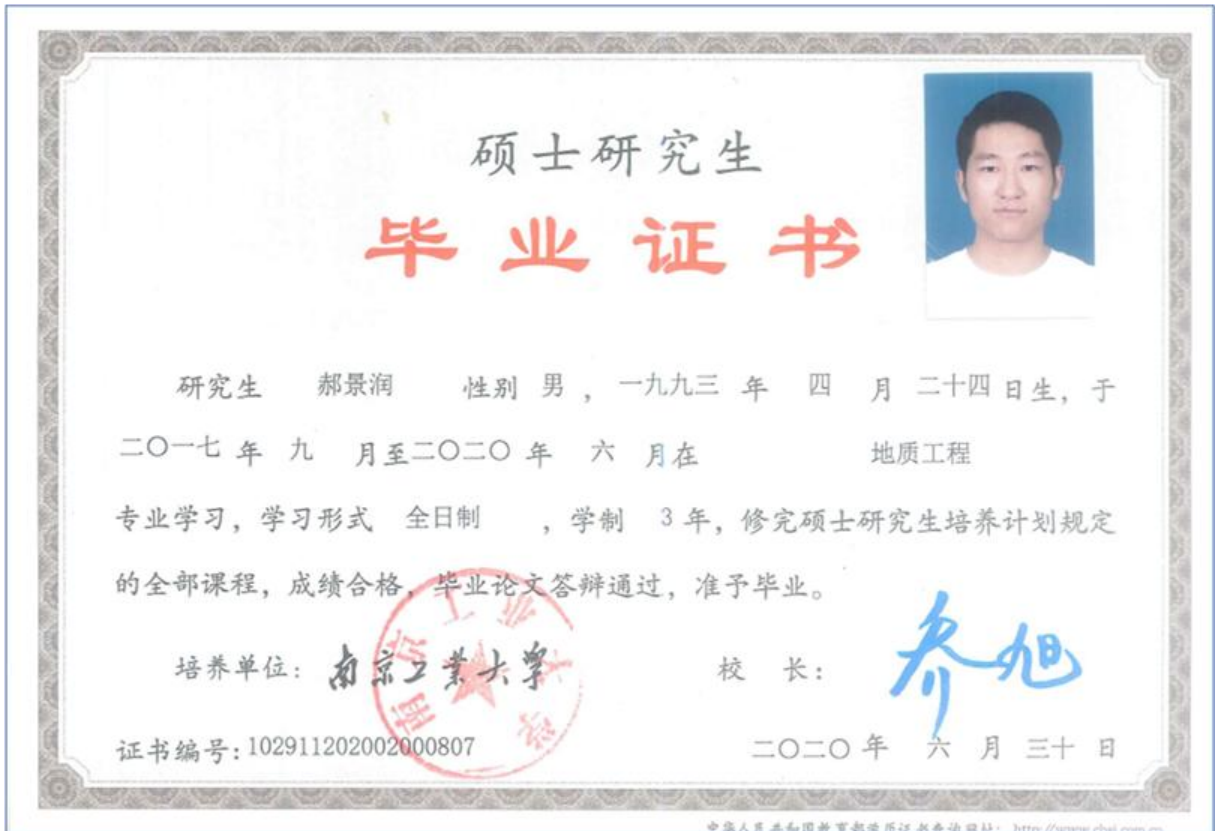 硕士研究生
毕业证书
研究生 郝景润 性别 男 ，一九九三 年 四 月 二十四 日生，于
二〇一七 年 九 月至二〇二〇 年 六 月在 地质工程
专业学习，学习形式 全日制 ，学制 3 年，修完硕士研究生培养计划规定
的全部课程，成绩合格，毕业论文答辩通过，准予毕业。
培养单位：南京工业大学 校 长： 乔旭
南京工业大学
证书编号:102911202002000807 二〇二〇 年 六 月 三十 日
中华人民共和国教育部学历证书查询网址： http://www.chsi.com.cn